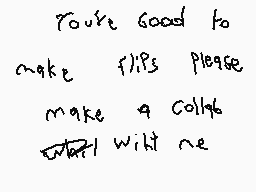 You're Good to
make flips please
make a collab
wiht me